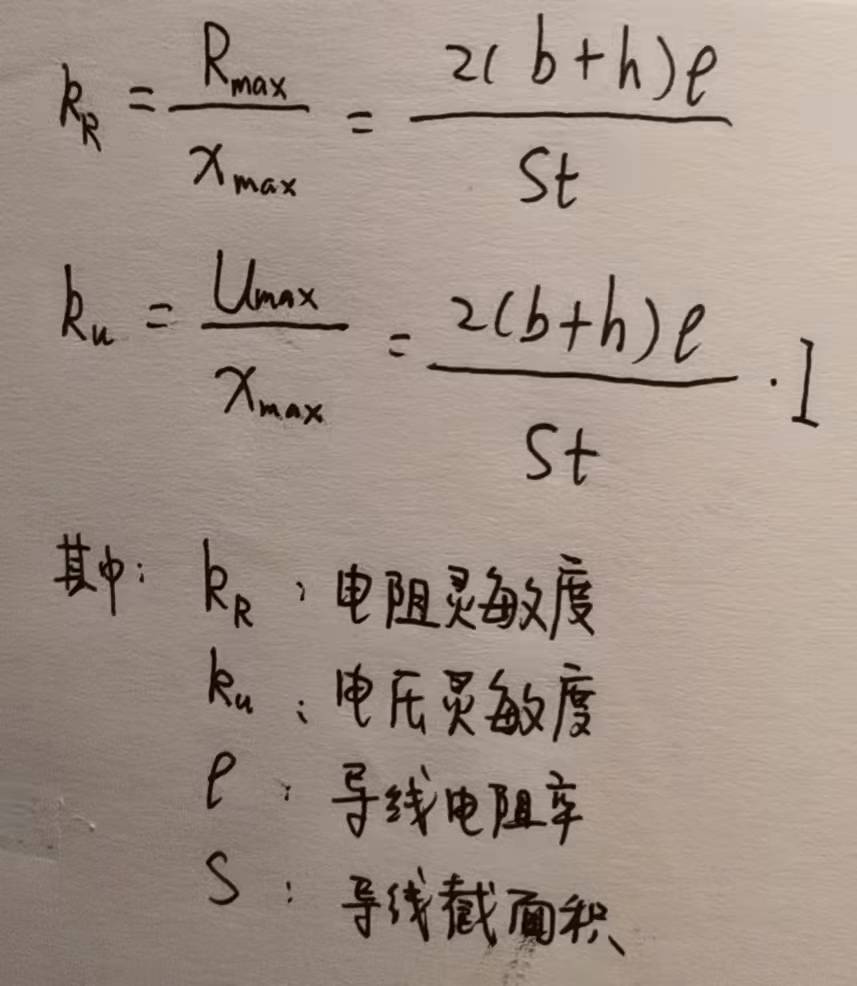 k_R = R_max / x_max = 2(b+h)ρ / St
k_u = U_max / x_max = 2(b+h)ρ / St · I
其中: k_R : 电阻灵敏度
k_u : 电压灵敏度
ρ : 导线电阻率
S : 导线截面积